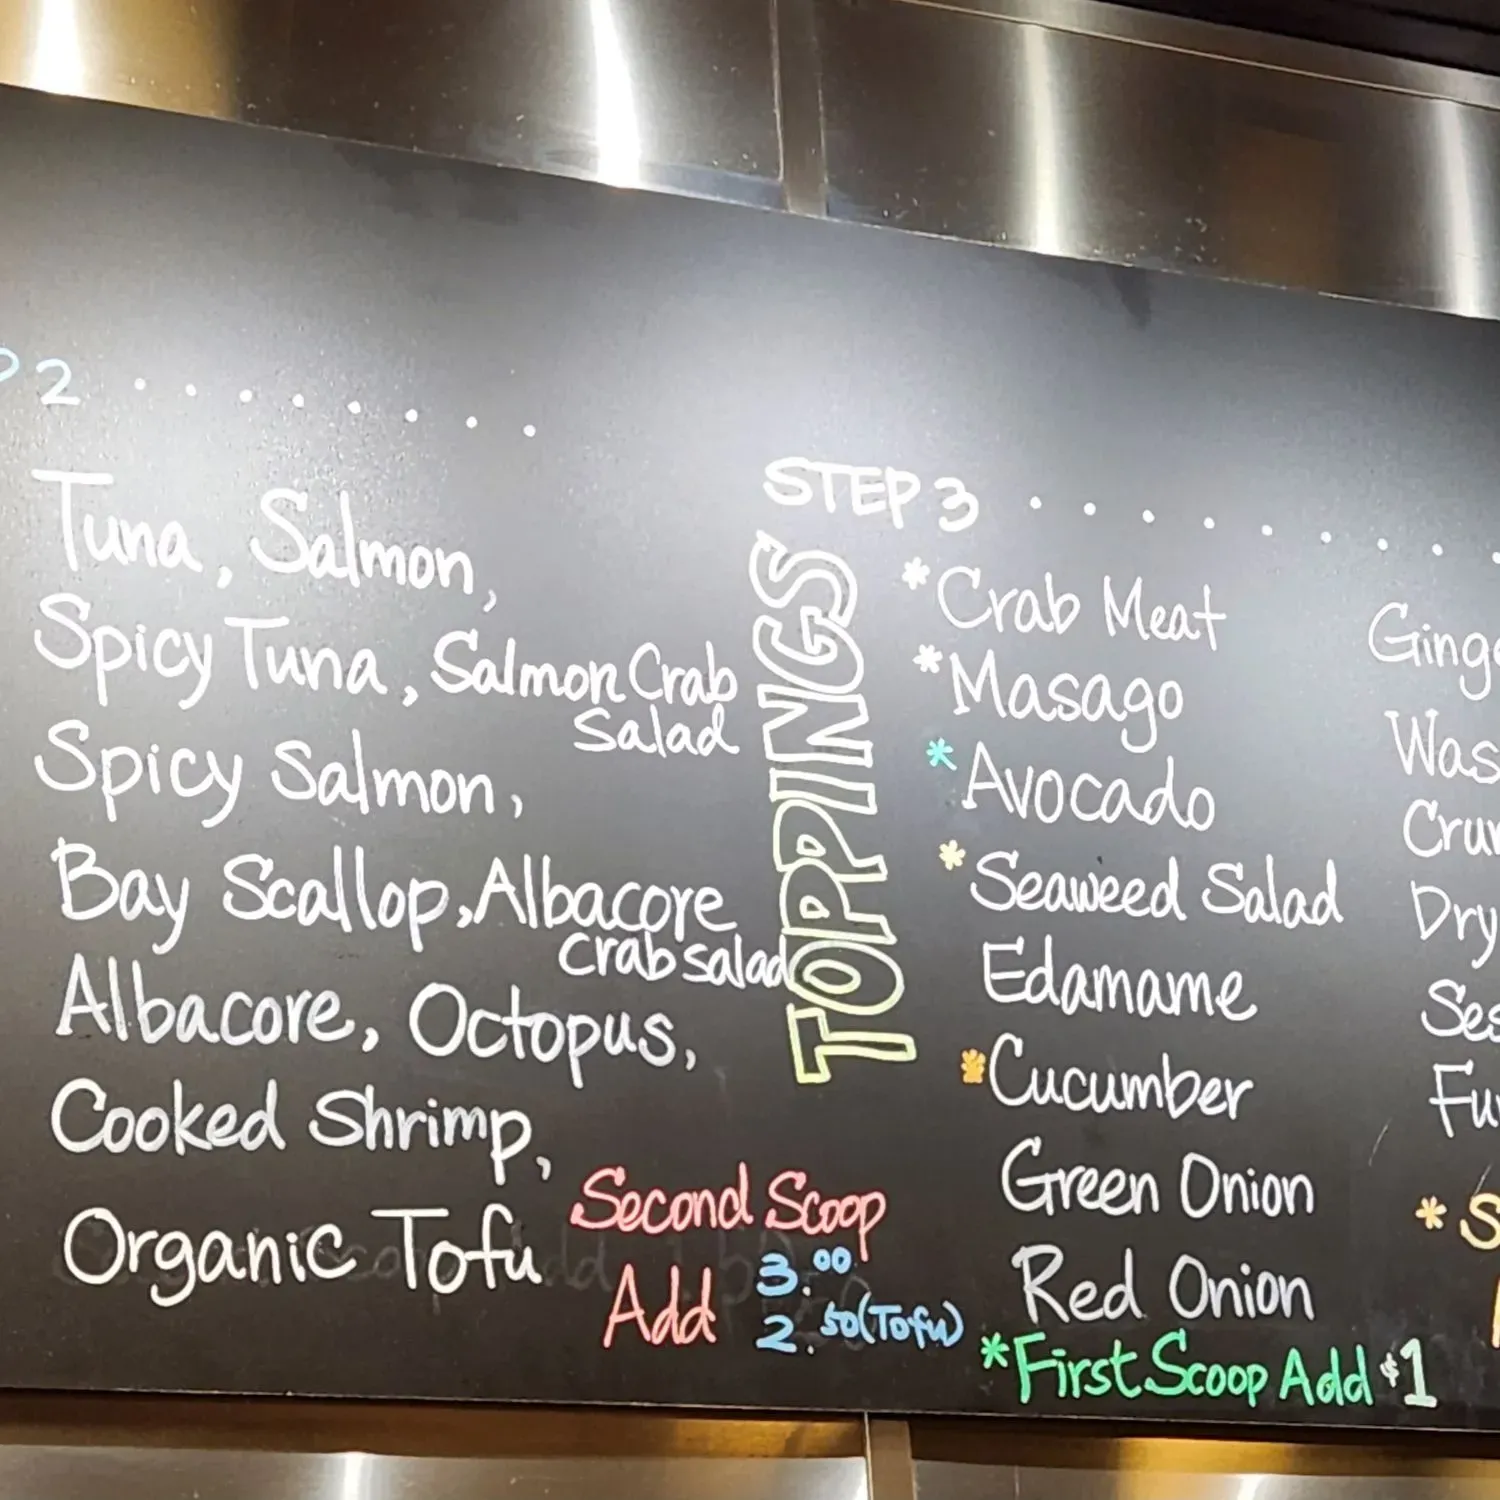 2 . . . . . . . .
Tuna, Salmon,
Spicy Tuna, Salmon Crab
Salad
Spicy Salmon,
Bay Scallop, Albacore
Crab Salad
Albacore, Octopus,
Cooked Shrimp,
Organic Tofu
Second Scoop
Add 3.00
2.50 (Tofu)
TOPPINGS
STEP 3 . . . . . . . . .
*Crab Meat
*Masago
*Avocado
*Seaweed Salad
Edamame
*Cucumber
Green Onion
Red Onion
*First Scoop Add $1